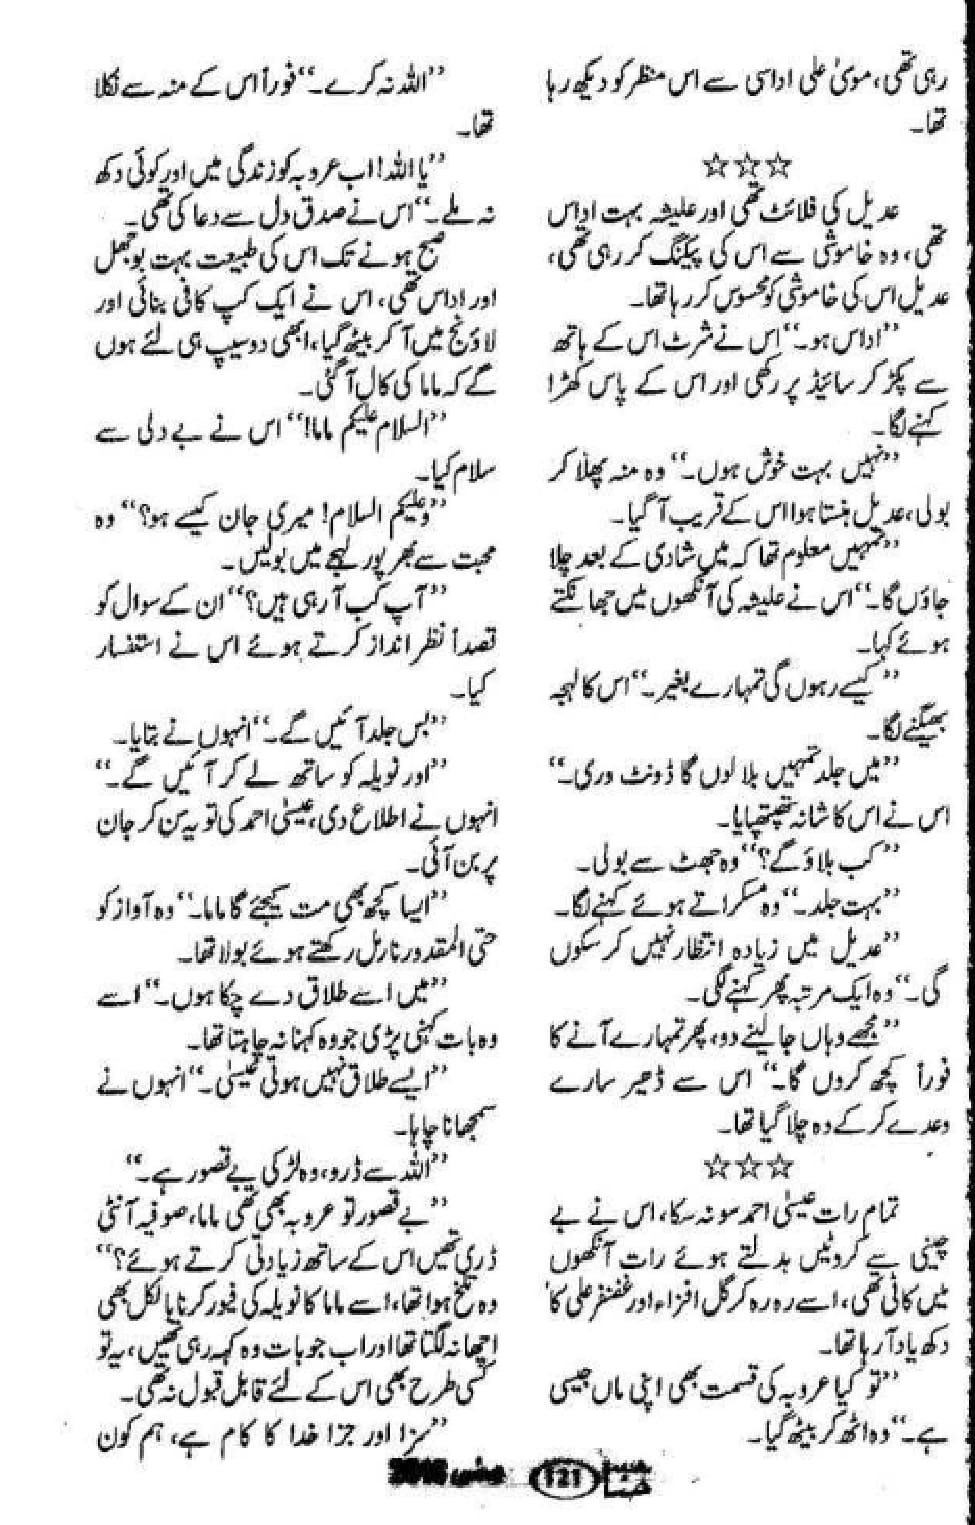 رہی تھی، موسیٰ علی اداسی سے اس منظر کو دیکھ رہا
تھا۔
☆☆☆
عدیل کی فلائٹ تھی اور علیشہ بہت اداس
تھی، وہ خاموشی سے اس کی پیکنگ کر رہی تھی،
عدیل اس کی خاموشی کو محسوس کر رہا تھا۔
”اداس ہو۔“ اس نے شرٹ اس کے ہاتھ
سے پکڑ کر سائیڈ پر رکھی اور اس کے پاس کھڑا
کہنے لگا۔
”نہیں بہت خوش ہوں۔“ وہ منہ پھلا کر
بولی، عدیل ہنستا ہوا اس کے قریب آ گیا۔
”تمہیں معلوم تھا کہ میں شادی کے بعد چلا
جاؤں گا۔“ اس نے علیشہ کی آنکھوں میں جھانکتے
ہوئے کہا۔
”کیسے رہوں گی تمہارے بغیر۔“ اس کا لہجہ
بھیگنے لگا۔
”میں جلد تمہیں بلا لوں گا ڈونٹ وری۔“
اس نے اس کا شانہ تھپتھپایا۔
”کب بلاؤ گے؟“ وہ جھٹ سے بولی۔
”بہت جلد۔“ وہ مسکراتے ہوئے کہنے لگا۔
”عدیل میں زیادہ انتظار نہیں کر سکوں
گی۔“ وہ ایک مرتبہ پھر کہنے لگی۔
”مجھے وہاں جا لینے دو، پھر تمہارے آنے کا
فوراً کچھ کروں گا۔“ اس سے ڈھیر سارے
وعدے کر کے وہ چلا گیا تھا۔
☆☆☆
تمام رات عیسیٰ احمد سو نہ سکا، اس نے بے
چینی سے کروٹیں بدلتے ہوئے رات آنکھوں
میں کاٹی تھی، اسے رہ رہ کر گل افزاء اور غضنفر علی کا
دکھ یاد آ رہا تھا۔
”تو کیا عروبہ کی قسمت بھی اپنی ماں جیسی
ہے۔“ وہ اٹھ کر بیٹھ گیا۔
”اللہ نہ کرے۔“ فوراً اس کے منہ سے نکلا
تھا۔
”یا اللہ! اب عروبہ کو زندگی میں اور کوئی دکھ
نہ ملے۔“ اس نے صدق دل سے دعا کی تھی۔
صبح ہونے تک اس کی طبیعت بہت بوجھل
اور اداس تھی، اس نے ایک کپ کافی بنائی اور
لاؤنج میں آ کر بیٹھ گیا، ابھی دو سیپ ہی لئے ہوں
گے کہ ماما کی کال آ گئی۔
”السلام علیکم ماما!“ اس نے بے دلی سے
سلام کیا۔
”وعلیکم السلام! میری جان کیسے ہو؟“ وہ
محبت سے بھرپور لہجے میں بولیں۔
”آپ کب آ رہی ہیں؟“ ان کے سوال کو
قصداً نظر انداز کرتے ہوئے اس نے استفسار
کیا۔
”بس جلد آئیں گے۔“ انہوں نے بتایا۔
”اور نویلہ کو ساتھ لے کر آئیں گے۔“
انہوں نے اطلاع دی، عیسیٰ احمد کی تو یہ سن کر جان
پر بن آئی۔
”ایسا کچھ بھی مت کیجئے گا ماما۔“ وہ آواز کو
حتی المقدور نارمل رکھتے ہوئے بولا تھا۔
”میں اسے طلاق دے چکا ہوں۔“ اسے
وہ بات کہنی پڑی جو وہ کہنا نہ چاہتا تھا۔
”ایسے طلاق نہیں ہوتی عیسیٰ۔“ انہوں نے
سمجھانا چاہا۔
”اللہ سے ڈرو، وہ لڑکی بے قصور ہے۔“
”بے قصور تو عروبہ بھی تھی ماما، صوفیہ آنٹی
ڈری تھیں اس کے ساتھ زیادتی کرتے ہوئے؟“
وہ تلخ ہوا تھا، اسے ماما کا نویلہ کی فیور کرنا بالکل بھی
اچھا نہ لگتا تھا اور اب جو بات وہ کہہ رہی تھیں، یہ تو
کسی طرح بھی اس کے لئے قابل قبول نہ تھی۔
”سزا اور جزا خدا کا کام ہے، ہم کون
حنا 121